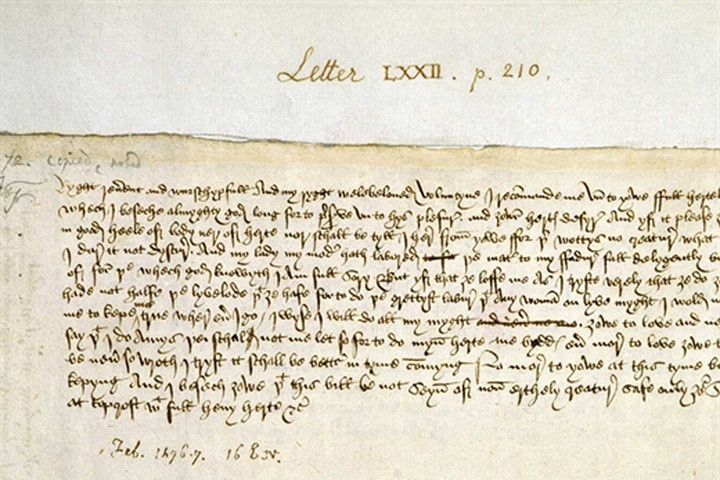 Letter LXXII. p. 210.
72. copied, noted
Ryght reverent and wurschypfull And my ryght welebeloued Voluntyne I recomande me vn to yowe ffull hertel
whech I beseche almyghty god long for to p'serve vn to hys plesur and zour herts desyr And yf it please y
in good heele of body ner of herte nor schall be tyll I her from yowe ffor þ' wottys no creatur what
I dar it not dyscur And my lady my mod' hath labored þe mat' to my ffadur full delygently b
of for þe whech god knowyth I Am full sory But yf that ze loffe me As I tryste verely that ze do z
hade not halfe þe lyvelode þt ze hafe for to do þe grettyst labur þt Any woman on lyve myght I wold n
me to kepe me true wher eu' I go I wyse I will do all my myght zowe to love and ne
say þt I do Amys þei schal not me let so for to do myn herte me bydds eu' mor to love zowe t
be neu' so wroth I tryst it schall be bett' in tyme comyng No mor to yowe at this tyme b
kepyng And I besech zowe þt this bill be not seyn of non erthely creatur safe only
at topcroft wt full hevy herte &c
Feb. 1476-7. 16 E. iv.